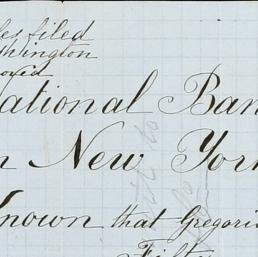 les filed
shington
oyed
ational Ban
n New York
Known that Gregori
Fifty